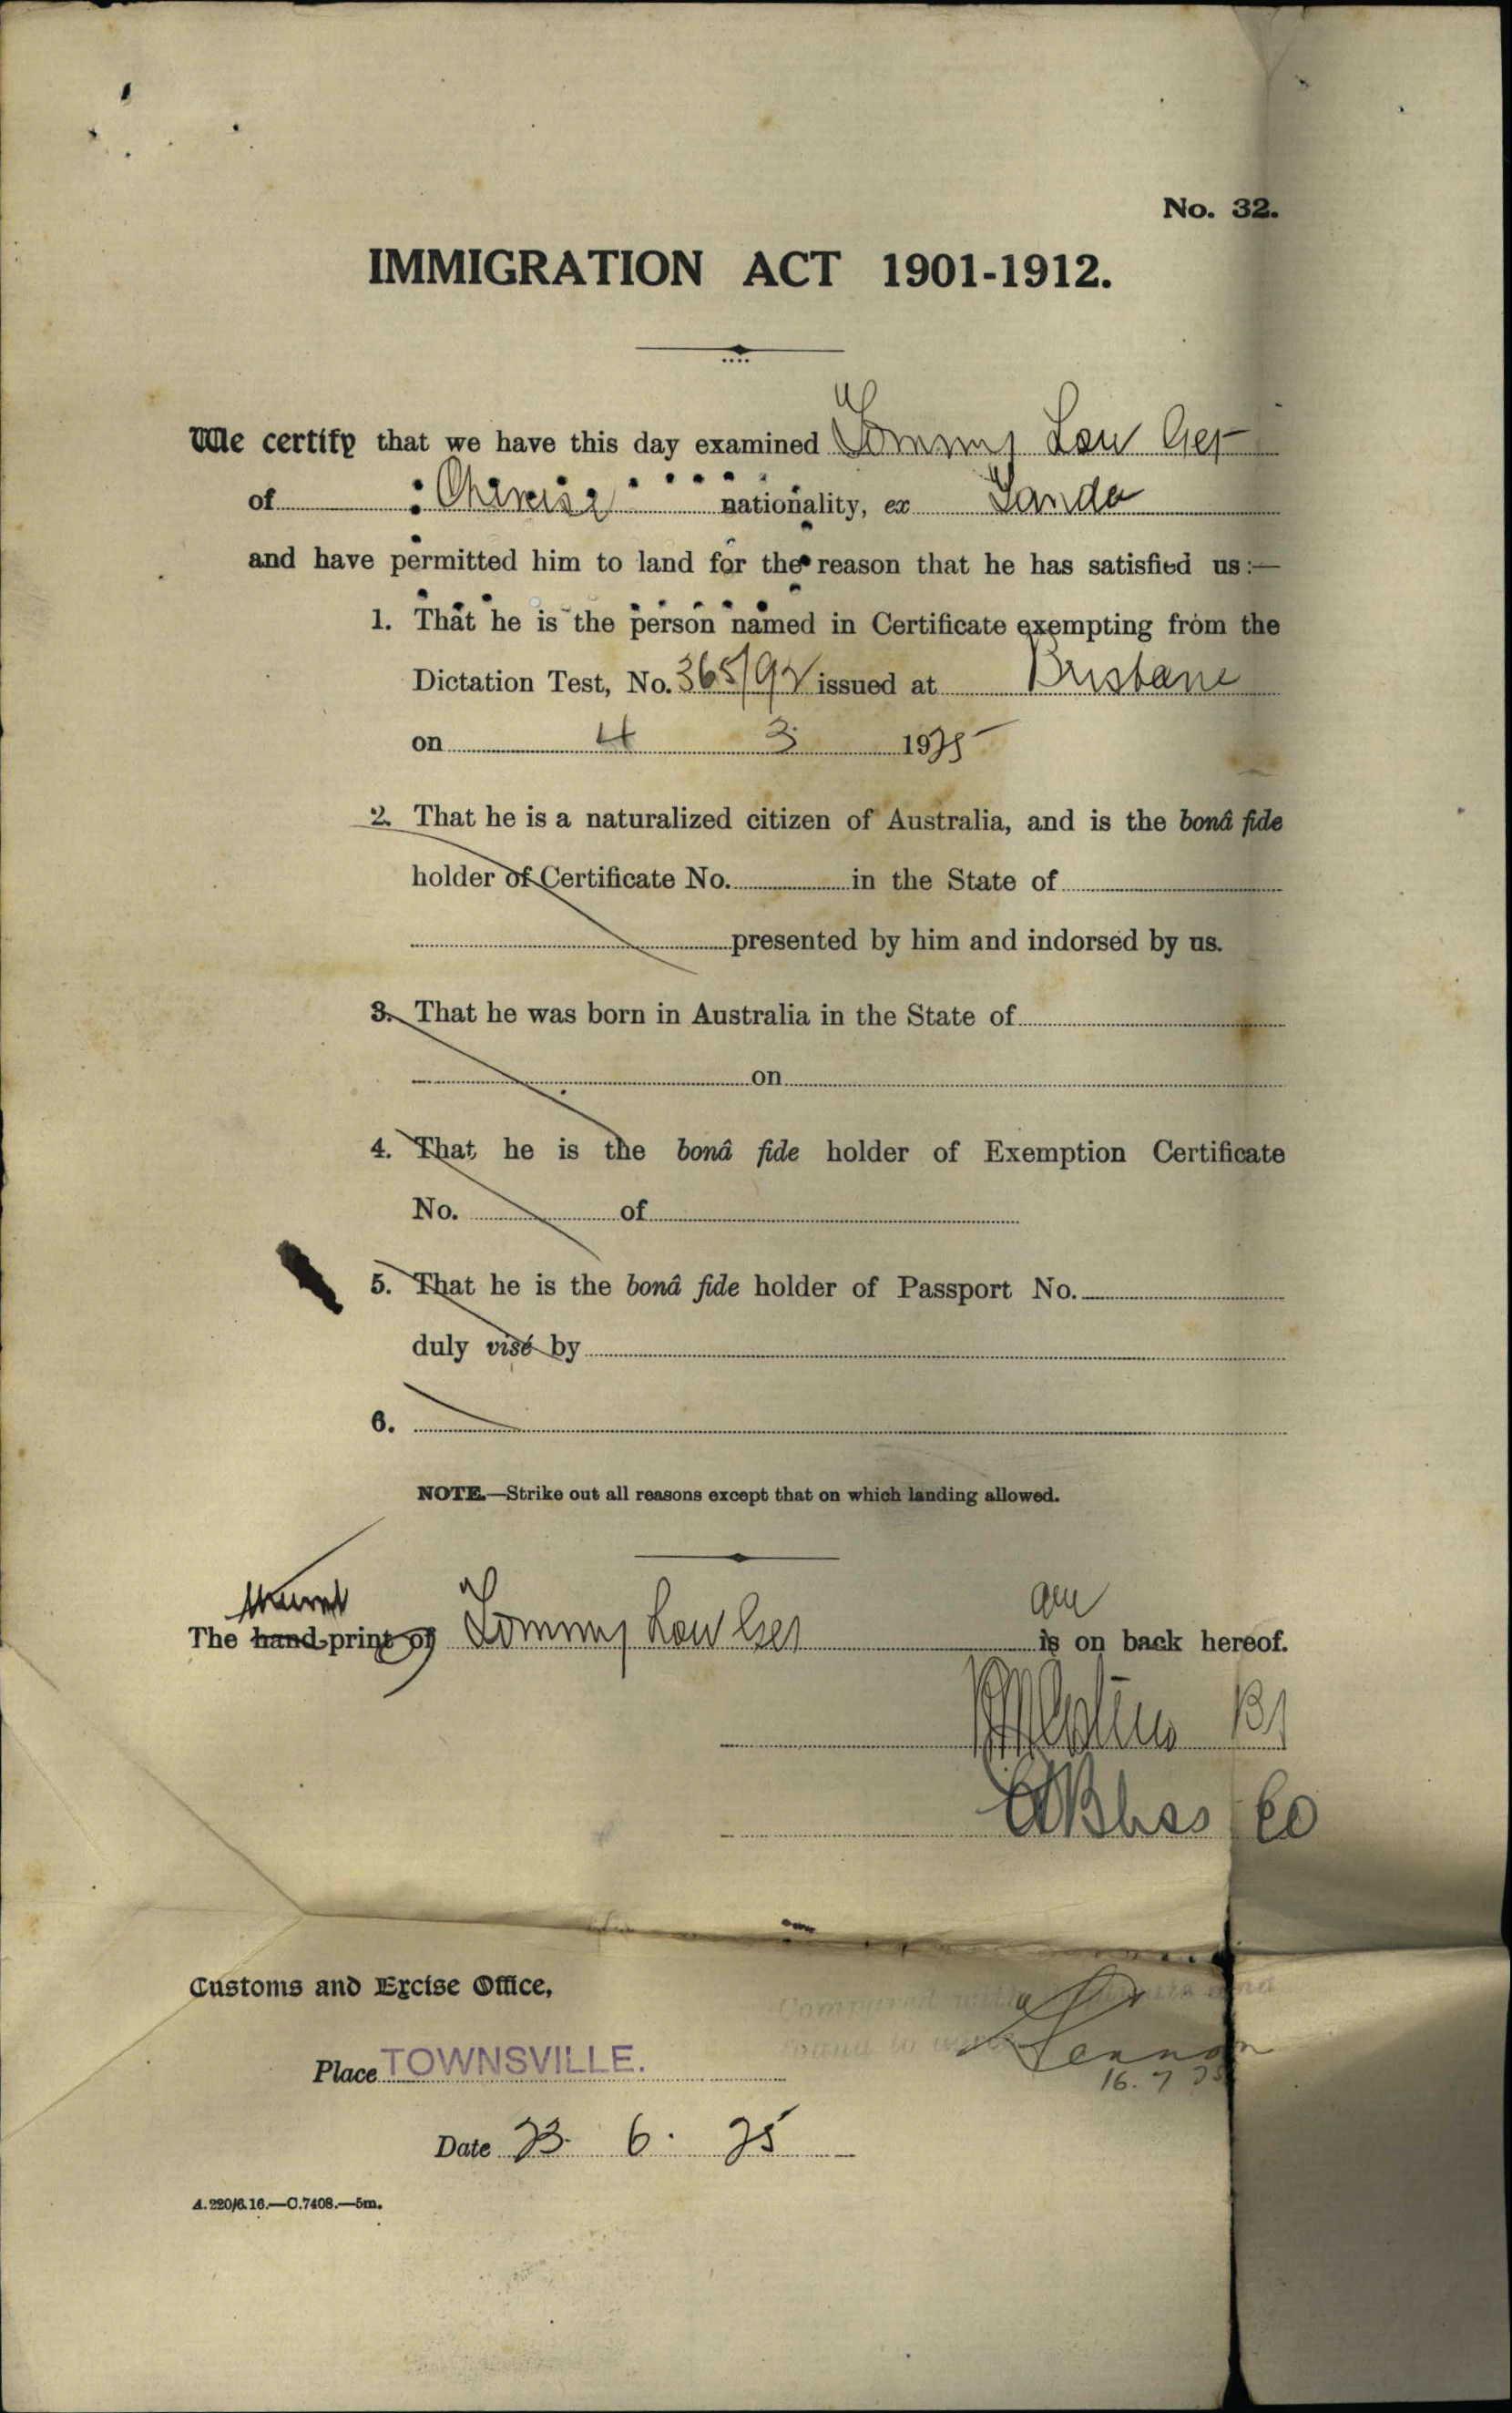 No. 32.
IMMIGRATION ACT 1901-1912.
We certify that we have this day examined Tommy Low Gep
of Chinese nationality, ex Tanda
and have permitted him to land for the reason that he has satisfied us:—
1. That he is the person named in Certificate exempting from the
Dictation Test, No. 365/92 issued at Brisbane
on 4 3 1925
2. That he is a naturalized citizen of Australia, and is the bonâ fide
holder of Certificate No. in the State of
presented by him and indorsed by us.
3. That he was born in Australia in the State of
on
4. That he is the bonâ fide holder of Exemption Certificate
No. of
5. That he is the bonâ fide holder of Passport No.
duly visé by
6.
NOTE.—Strike out all reasons except that on which landing allowed.
are
The hand-print of Tommy Low is on back hereof.
Customs and Excise Office,
Place TOWNSVILLE.
16. 7
Date 23. 6. 25
A.220/6.16.—C.7408.—5m.